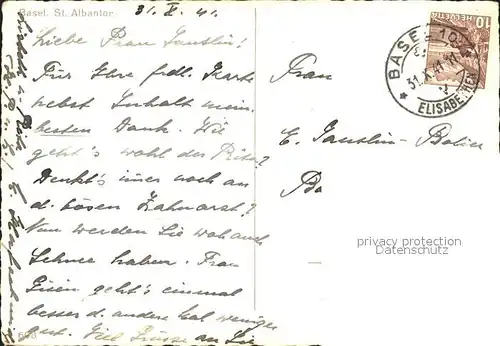 Basel. St. Albantor
31. X. 41.
Liebe Frau Jauslin!
Für Ihre frdl. Karte
nebst Inhalt mein.
besten Dank. Wie
geht's wohl der Rita?
Denkt's imer noch an
d. bösen Zahnarzt?
Nun werden Sie wohl auch
Schnee haben. Frau
geht's einmal
besser d. andere mal weniger
gut. Viel Grüsse an Sie
Frau
E. Jauslin-
Ba
BASEL 10
31.X.41
ELISABETHEN
HELVETIA
10
privacy protection
Datenschutz